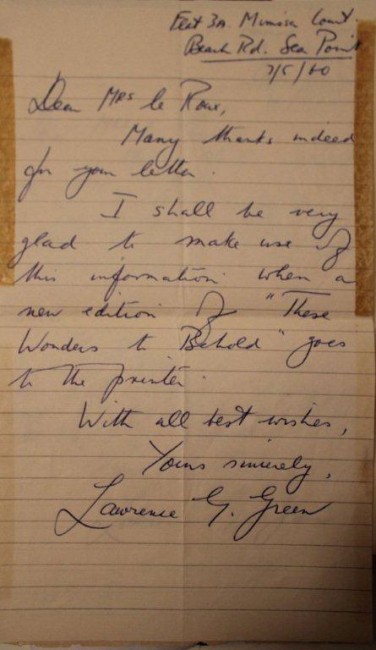 Flat 3A Mimosa Court
Beach Rd. Sea Point
7/5/60
Dear Mrs le Roux,
Many thanks indeed
for your letter.
I shall be very
glad to make use of
this information when a
new edition of "These
Wonders to Behold" goes
to the printer.
With all best wishes,
Yours sincerely,
Lawrence G. Green